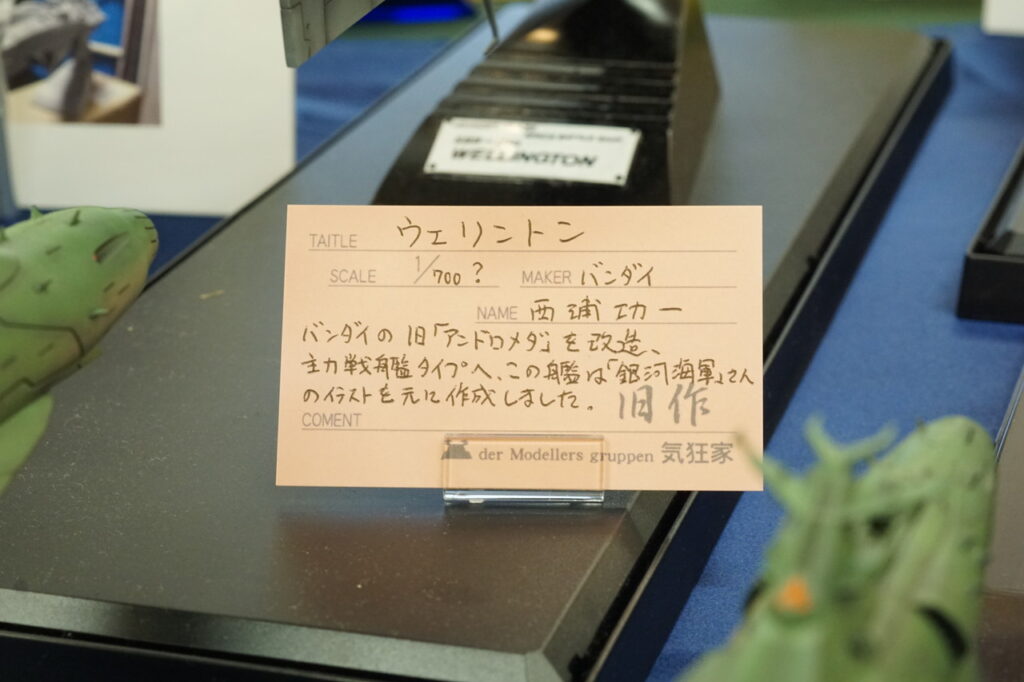 WELLINGTON
TAITLE ウェリントン
SCALE 1/700? MAKER バンダイ
NAME 西浦功一
バンダイの旧「アンドロメダ」を改造、
主力戦艦タイプへ、この艦は「銀河海軍」さん
のイラストを元に作成しました。 旧作
COMENT
der Modellers gruppen 気狂家